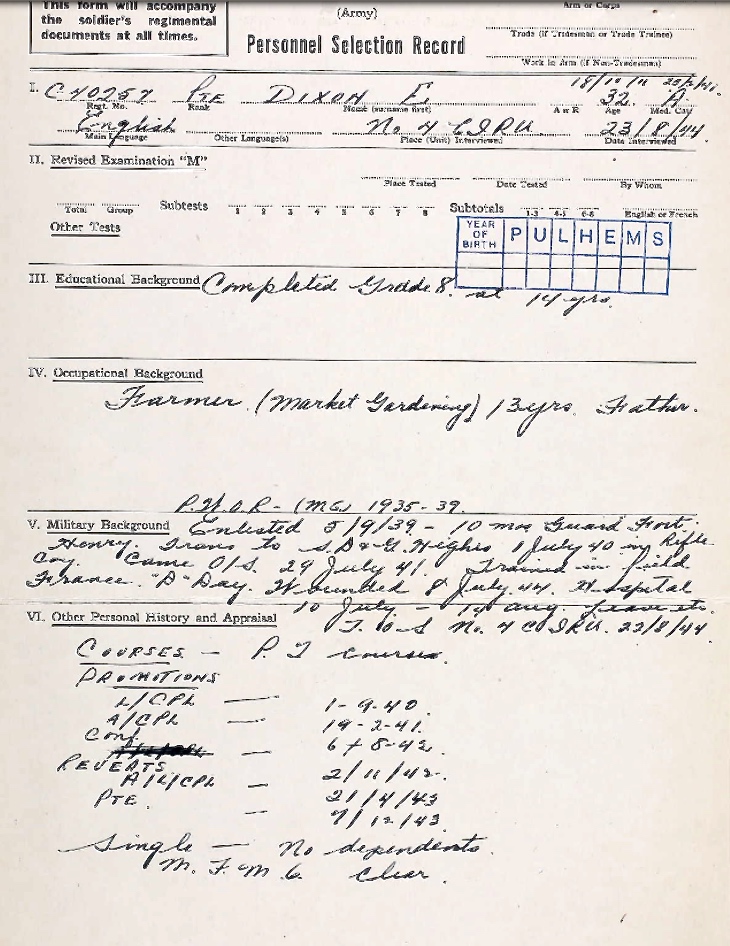 This form will accompany
the soldier's regimental
documents at all times.
(Army)
Personnel Selection Record
Arm or Corps
Trade (if Tradesman or Trade Trainee)
Work in Arm (if Non-Tradesman)
18/10/11
I. C 40257 Pte DIXON E 32 A
Regt. No. Rank Name (surname first) A or R Age Med. Cat.
English No 4 C.I.R.U. 23/8/44
Main Language Other Language(s) Place (Unit) Interviewed Date Interviewed
II. Revised Examination "M"
Place Tested Date Tested By Whom
Total Group Subtests 1 2 3 4 5 6 7 8 Subtotals 1-3 4-5 6-8 English or French
Other Tests
YEAR OF BIRTH P U L H E M S
III. Educational Background Completed Grade 8. at 14 yrs.
IV. Occupational Background
Farmer (Market Gardening) 13 yrs. Father.
P.W.O.R - (MG) 1935-39.
V. Military Background Enlisted 5/9/39 - 10 mos Guard Fort
Henry. Trans to S.D&G. Highrs 1 July 40 in Rifle
Coy. Came O/S. 29 July 41. Trained in field.
France. "D" Day. Wounded 8 July 44. Hospital
10 July - aug. Leave etc.
VI. Other Personal History and Appraisal T.O.S No. 4 CIRU. 22/8/44.
COURSES - P T course.
PROMOTIONS
L/CPL — 1-9-40.
A/CPL — 19-2-41.
Conf. — 6 + 8-42.
REVERTS 2/11/42.
A/L/CPL — 21/4/43
PTE. — 7/12/43.
Single — No dependents.
M. F. M. 6. Clear.